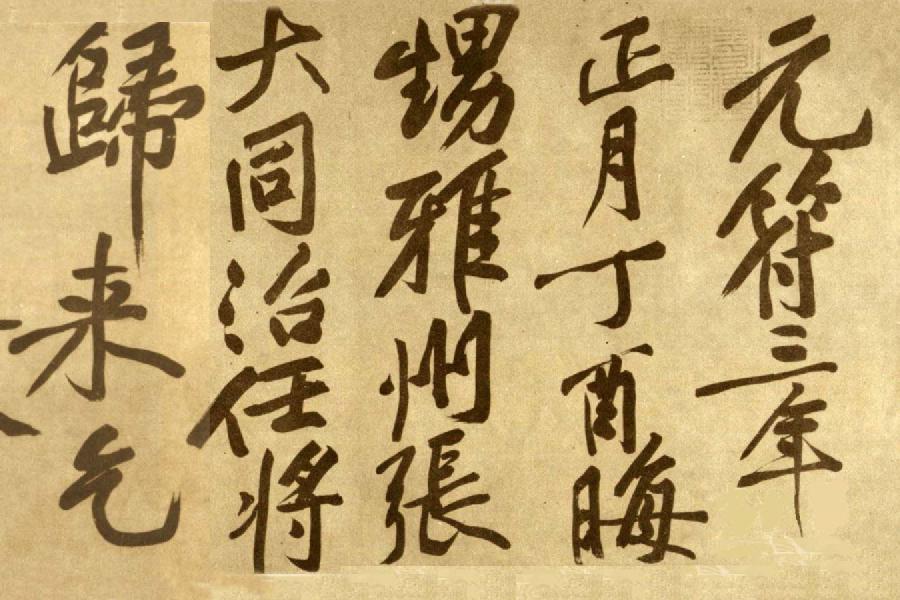 元符三年
正月丁酉晦
甥雅州張
大同治任將
歸来乞